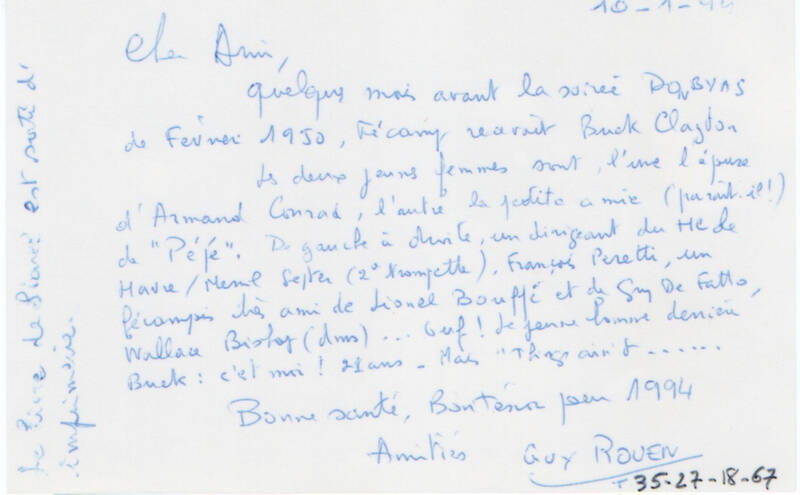 10-1-94
Cher Ami,
Quelques mois avant la soirée DON BYAS
de Février 1950, Fécamp recevait Buck Clayton
Les deux jeunes femmes sont, l'une l'épouse
d'Armand Conrad, l'autre la petite amie (paraît-il!)
de "Pépé". De gauche à droite, un dirigeant du HC de
Havre/ (2e trompette), François Peretti, un
fécampois très ami de Lionel Bouffé et de Guy De Fatto,
Wallace Bishop (dms) ... Ouf! Le jeune homme derrière
Buck : c'est moi! 21 ans - Mais "Things ain't ......
Bonne santé, Bon Ténor pour 1994
Amitiés GUY ROUEN
35-27-18-67
Le livre de est sorti d'
imprimerie.